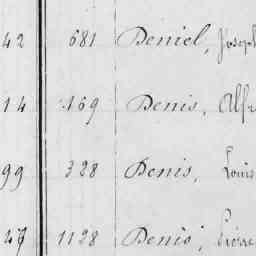 42 681 Deniel, Joseph
14 169 Denis, Alfr
99 328 Denis, Louis
47 1128 Denis, Pierre